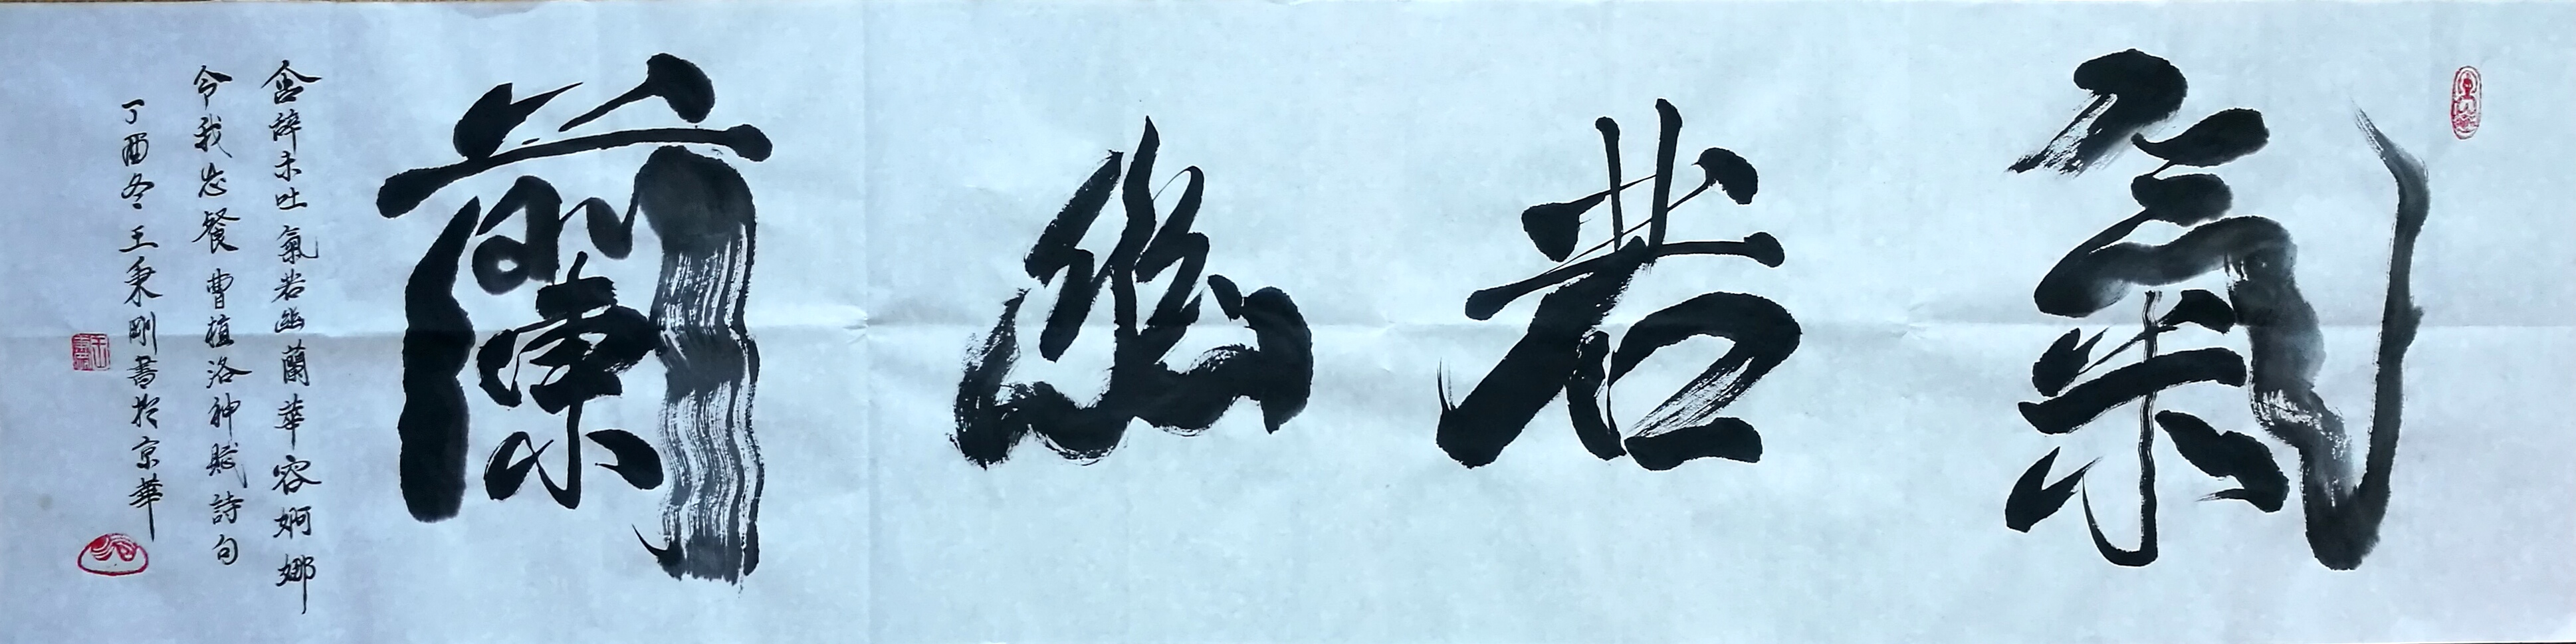 氣若幽蘭
含辭未吐氣若幽蘭華容婀娜
令我忘餐曹植洛神賦詩句
丁酉冬王秉剛書於京華